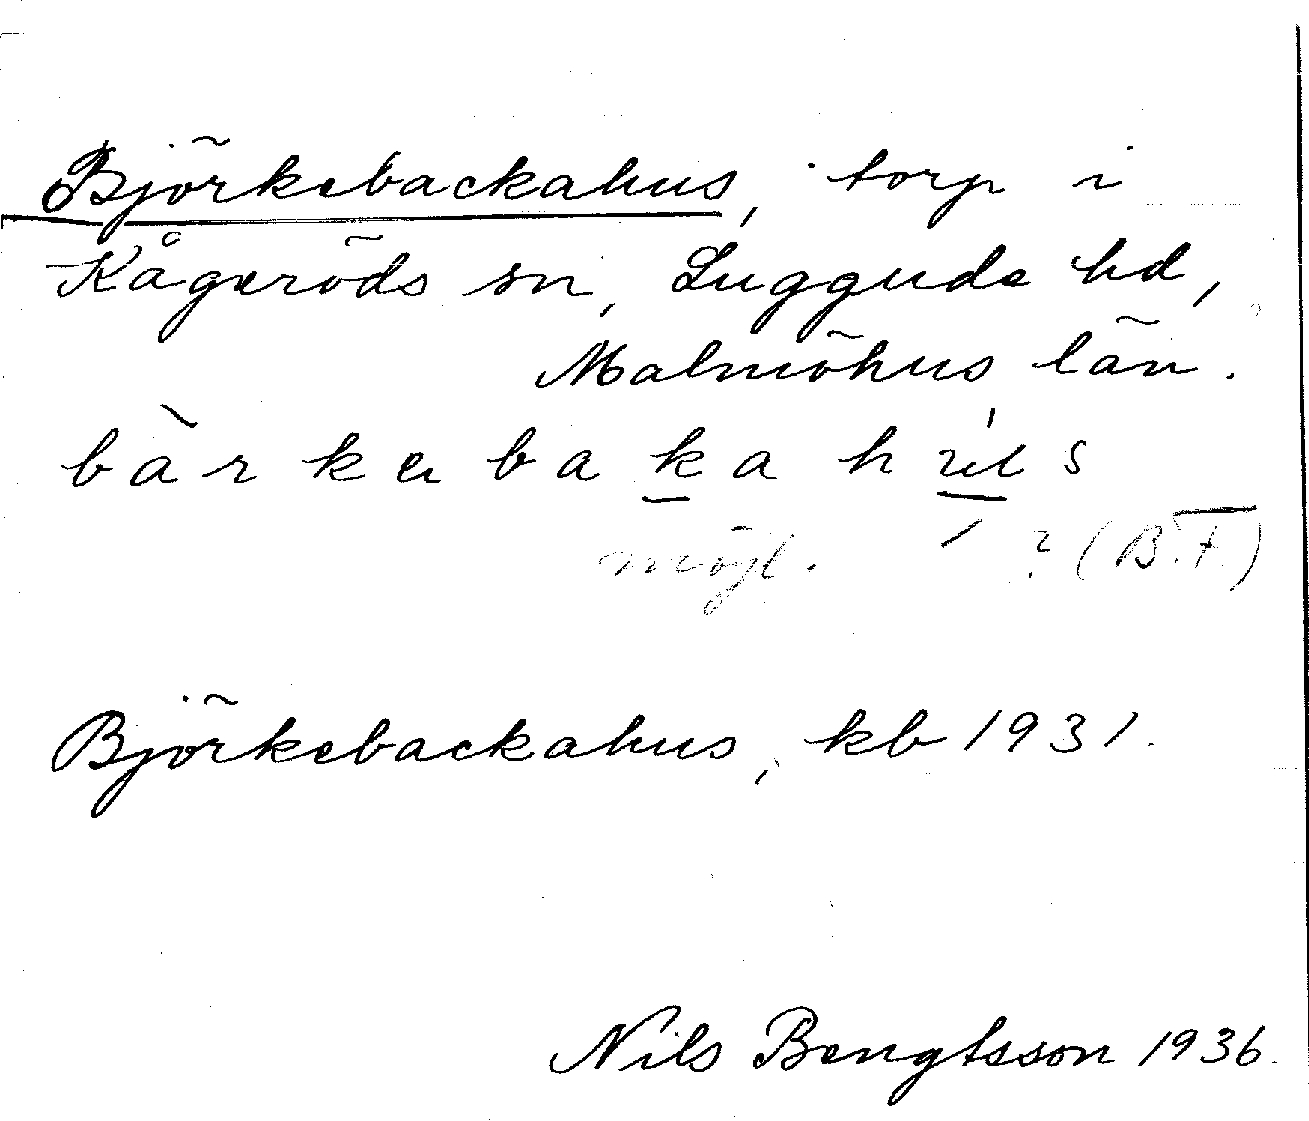 Björkebackahus, torp i
Kågeröds sn, Luggude hd,
Malmöhus län.
bàrkebakahús
möjl. ? (B.F.)
Björkebackahus, kb 1931.
Nils Bengtsson 1936.